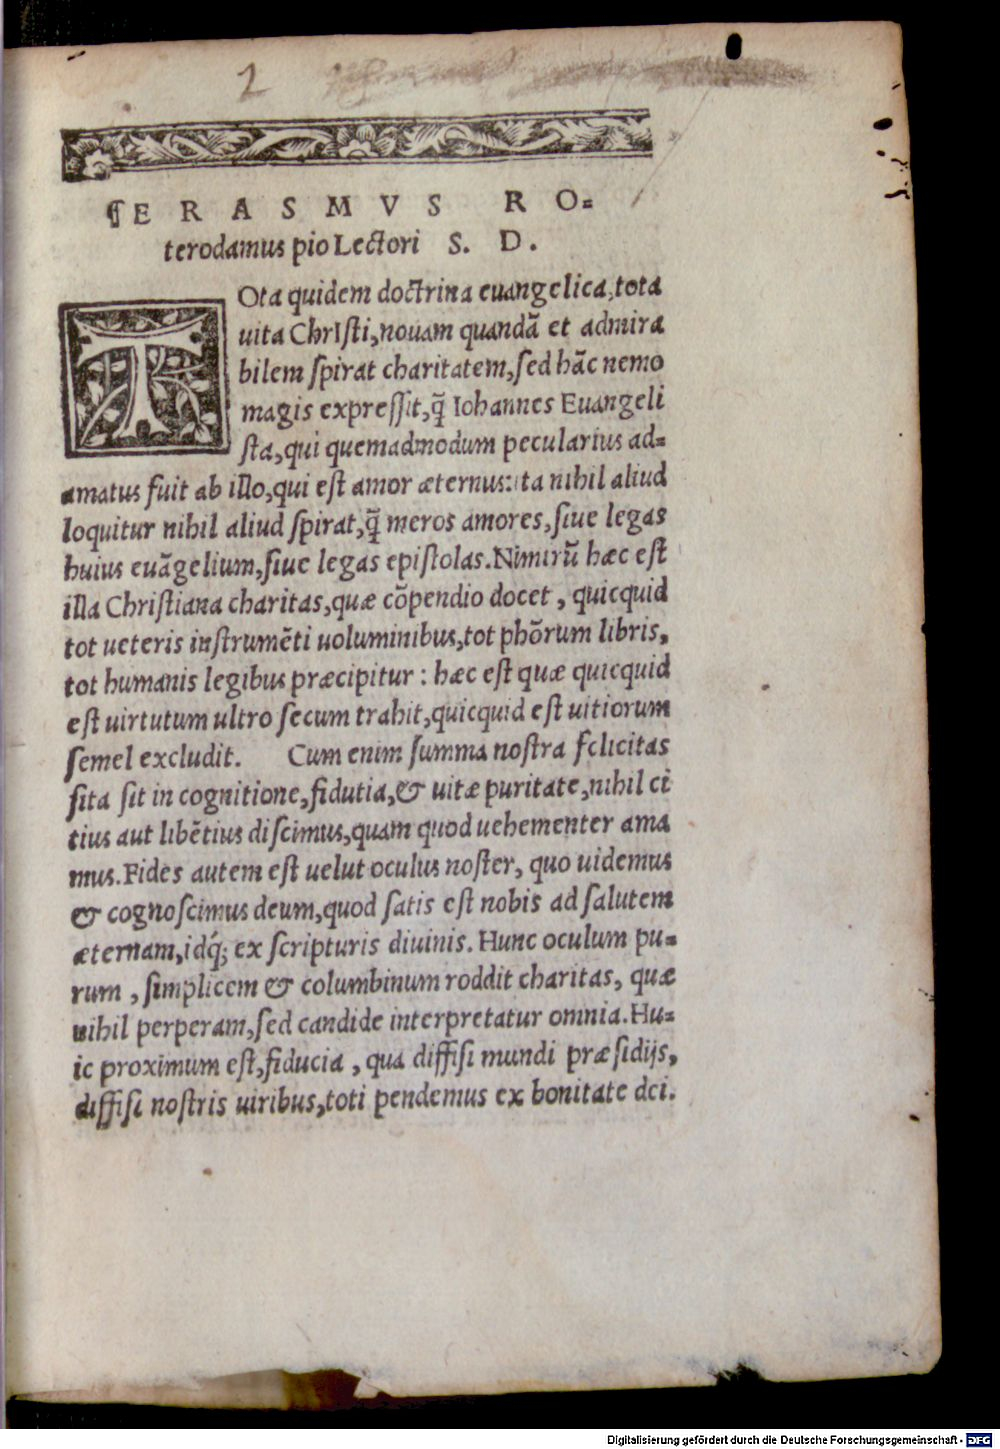 2
¶ERASMVS RO=
terodamus pio Lectori S. D.
TOta quidem doctrina euangelica, tota
uita ChrIsti, nouam quandã et admira
bilem spirat charitatem, sed hãc nemo
magis expressit, q̃ Iohannes Euangeli
sta, qui quemadmodum pecularius ad=
amatus fuit ab illo, qui est amor æternus: ita nihil aliud
loquitur nihil aliud spirat, q̃ meros amores, siue legas
huius euãgelium, siue legas epistolas. Nimirũ hæc est
illa Christiana charitas, quæ cõpendio docet, quicquid
tot ueteris instrumẽti uoluminibus, tot phõrum libris,
tot humanis legibus præcipitur: hæc est quæ quicquid
est uirtutum ultro secum trahit, quicquid est uitiorum
semel excludit. Cum enim summa nostra felicitas
sita sit in cognitione, fidutia, & uitæ puritate, nihil ci
tius aut libẽtius discimus, quam quod uehementer ama
mus. Fides autem est uelut oculus noster, quo uidemus
& cognoscimus deum, quod satis est nobis ad salutem
æternam, idq́; ex scripturis diuinis. Hunc oculum pu=
rum, simplicem & columbinum roddit charitas, quæ
nihil perperam, sed candide interpretatur omnia. Hu=
ic proximum est, fiducia, qua diffisi mundi præsidijs,
diffisi nostris uiribus, toti pendemus ex bonitate dei.
Digitalisierung gefördert durch die Deutsche Forschungsgemeinschaft - DFG